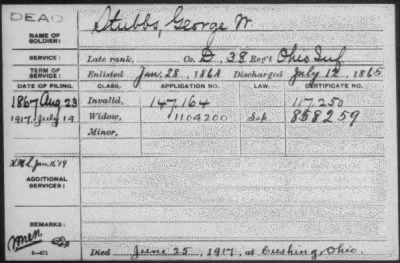 DEAD
NAME OF SOLDIER: Stubbs, George W.
SERVICE: Late rank, Co. D, 38 Reg't Ohio Inf.
TERM OF SERVICE: Enlisted Jan. 28, 1864 Discharged July 12, 1865
DATE OF FILING. CLASS. APPLICATION NO. LAW. CERTIFICATE NO.
1867 Aug. 23 Invalid, 147.164 117.250
1917 July 14 Widow, 1104200 858259
Minor,
Jan 16 '19
ADDITIONAL SERVICES:
REMARKS:
Died June 25, 1917, at Cushing, Ohio.